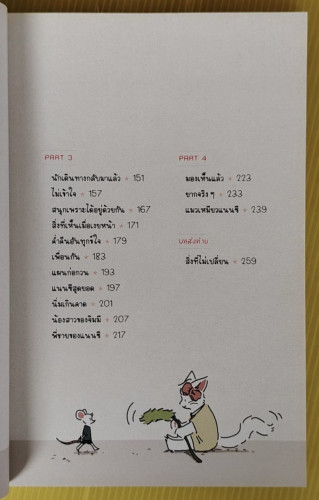 PART 3
นักเดินทางกลับมาแล้ว 151
ไม่เข้าใจ 157
สนุกเพราะได้อยู่ด้วยกัน 167
สิ่งที่เห็นเมื่อเงยหน้า 171
ล่ำคืนอันทุกข์ใจ 179
เพื่อนกัน 183
แผนก่อกวน 193
แนนซีสุดยอด 197
นิ่มเกินคาด 201
น้องสาวของจิมมี 207
พี่ชายของแนนซี 217
PART 4
มองเห็นแล้ว 223
ยากจริง ๆ 233
แมวเหมียวแนนซี 239
บทส่งท้าย
สิ่งที่ไม่เปลี่ยน 259